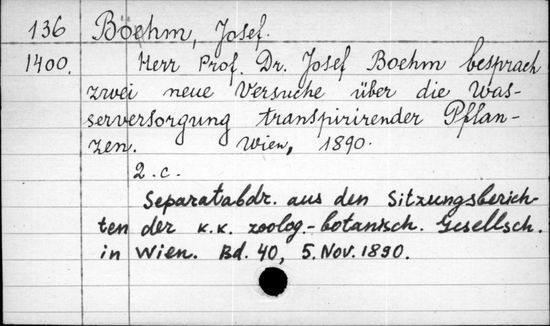 136 Boehm, Josef.
1400. Herr Prof. Dr. Josef Boehm besprach
zwei neue Versuche über die Was-
serversorgung transpirirender Pflan-
zen. Wien, 1890.
2.c.
Separatabdr. aus den Sitzungsberich-
ten der k.k. zoolog.-botanisch. Gesellsch.
in Wien. Bd. 40, 5. Nov. 1890.